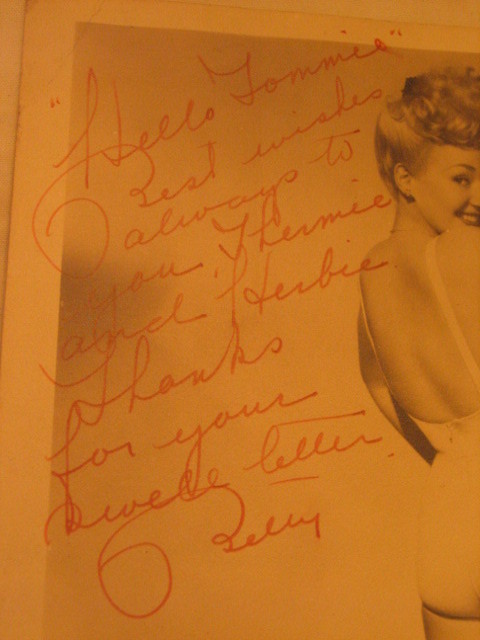 "Hello Tommie"
Best wishes
always to
you, Thermie
and Herbie
Thanks
for your
sweet letter.
Betty